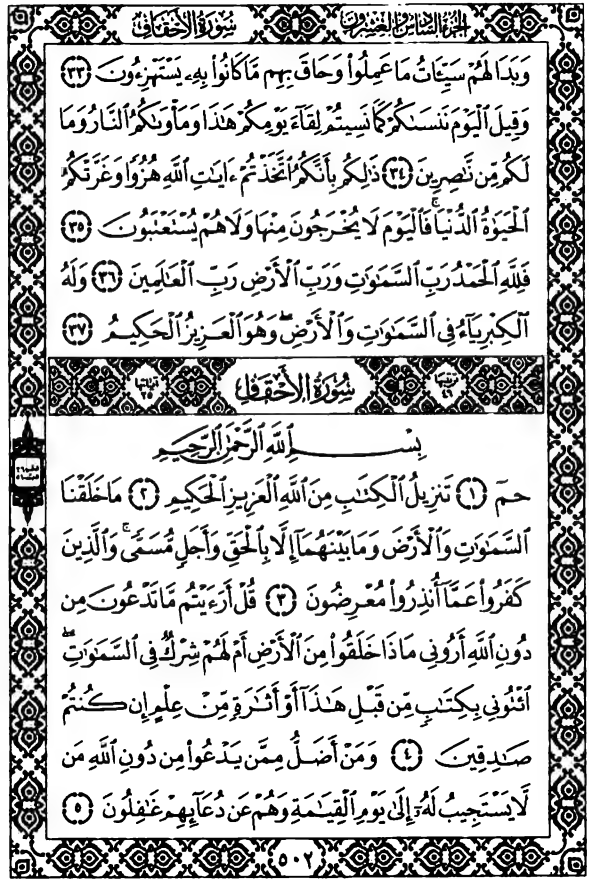 الجزء السادس والعشرون سورة الأحقاف
وَبَدَا لَهُمْ سَيِّـَٔاتُ مَا عَمِلُوا۟ وَحَاقَ بِهِم مَّا كَانُوا۟ بِهِۦ يَسْتَهْزِءُونَ ٣٣
وَقِيلَ ٱلْيَوْمَ نَنسَىٰكُمْ كَمَا نَسِيتُمْ لِقَآءَ يَوْمِكُمْ هَـٰذَا وَمَأْوَىٰكُمُ ٱلنَّارُ وَمَا
لَكُم مِّن نَّـٰصِرِينَ ٣٤ ذَٰلِكُم بِأَنَّكُمُ ٱتَّخَذْتُمْ ءَايَـٰتِ ٱللَّهِ هُزُوًا وَغَرَّتْكُمُ
ٱلْحَيَوٰةُ ٱلدُّنْيَا ۚ فَٱلْيَوْمَ لَا يُخْرَجُونَ مِنْهَا وَلَا هُمْ يُسْتَعْتَبُونَ ٣٥
فَلِلَّهِ ٱلْحَمْدُ رَبِّ ٱلسَّمَـٰوَٰتِ وَرَبِّ ٱلْأَرْضِ رَبِّ ٱلْعَـٰلَمِينَ ٣٦ وَلَهُ
ٱلْكِبْرِيَآءُ فِى ٱلسَّمَـٰوَٰتِ وَٱلْأَرْضِ ۖ وَهُوَ ٱلْعَزِيزُ ٱلْحَكِيمُ ٣٧
ترتيبها ٤٦ سُورَةُ الأَحْقَافِ آياتها ٣٥
بِسْمِ ٱللَّهِ ٱلرَّحْمَـٰنِ ٱلرَّحِيمِ
حمٓ ١ تَنزِيلُ ٱلْكِتَـٰبِ مِنَ ٱللَّهِ ٱلْعَزِيزِ ٱلْحَكِيمِ ٢ مَا خَلَقْنَا
ٱلسَّمَـٰوَٰتِ وَٱلْأَرْضَ وَمَا بَيْنَهُمَآ إِلَّا بِٱلْحَقِّ وَأَجَلٍ مُّسَمًّى ۚ وَٱلَّذِينَ
كَفَرُوا۟ عَمَّآ أُنذِرُوا۟ مُعْرِضُونَ ٣ قُلْ أَرَءَيْتُم مَّا تَدْعُونَ مِن
دُونِ ٱللَّهِ أَرُونِى مَاذَا خَلَقُوا۟ مِنَ ٱلْأَرْضِ أَمْ لَهُمْ شِرْكٌ فِى ٱلسَّمَـٰوَٰتِ ۖ
ٱئْتُونِى بِكِتَـٰبٍ مِّن قَبْلِ هَـٰذَآ أَوْ أَثَـٰرَةٍ مِّنْ عِلْمٍ إِن كُنتُمْ
صَـٰدِقِينَ ٤ وَمَنْ أَضَلُّ مِمَّن يَدْعُوا۟ مِن دُونِ ٱللَّهِ مَن
لَّا يَسْتَجِيبُ لَهُۥٓ إِلَىٰ يَوْمِ ٱلْقِيَـٰمَةِ وَهُمْ عَن دُعَآئِهِمْ غَـٰفِلُونَ ٥
٥٠٢